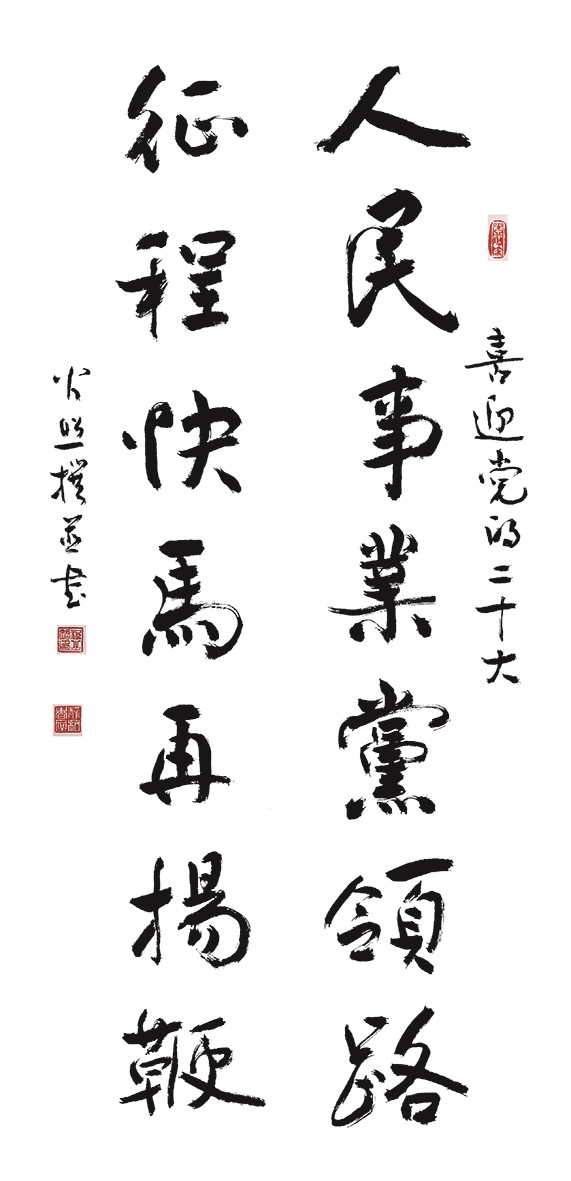 喜迎党的二十大
人民事業黨領路
征程快馬再揚鞭
火照撰並书